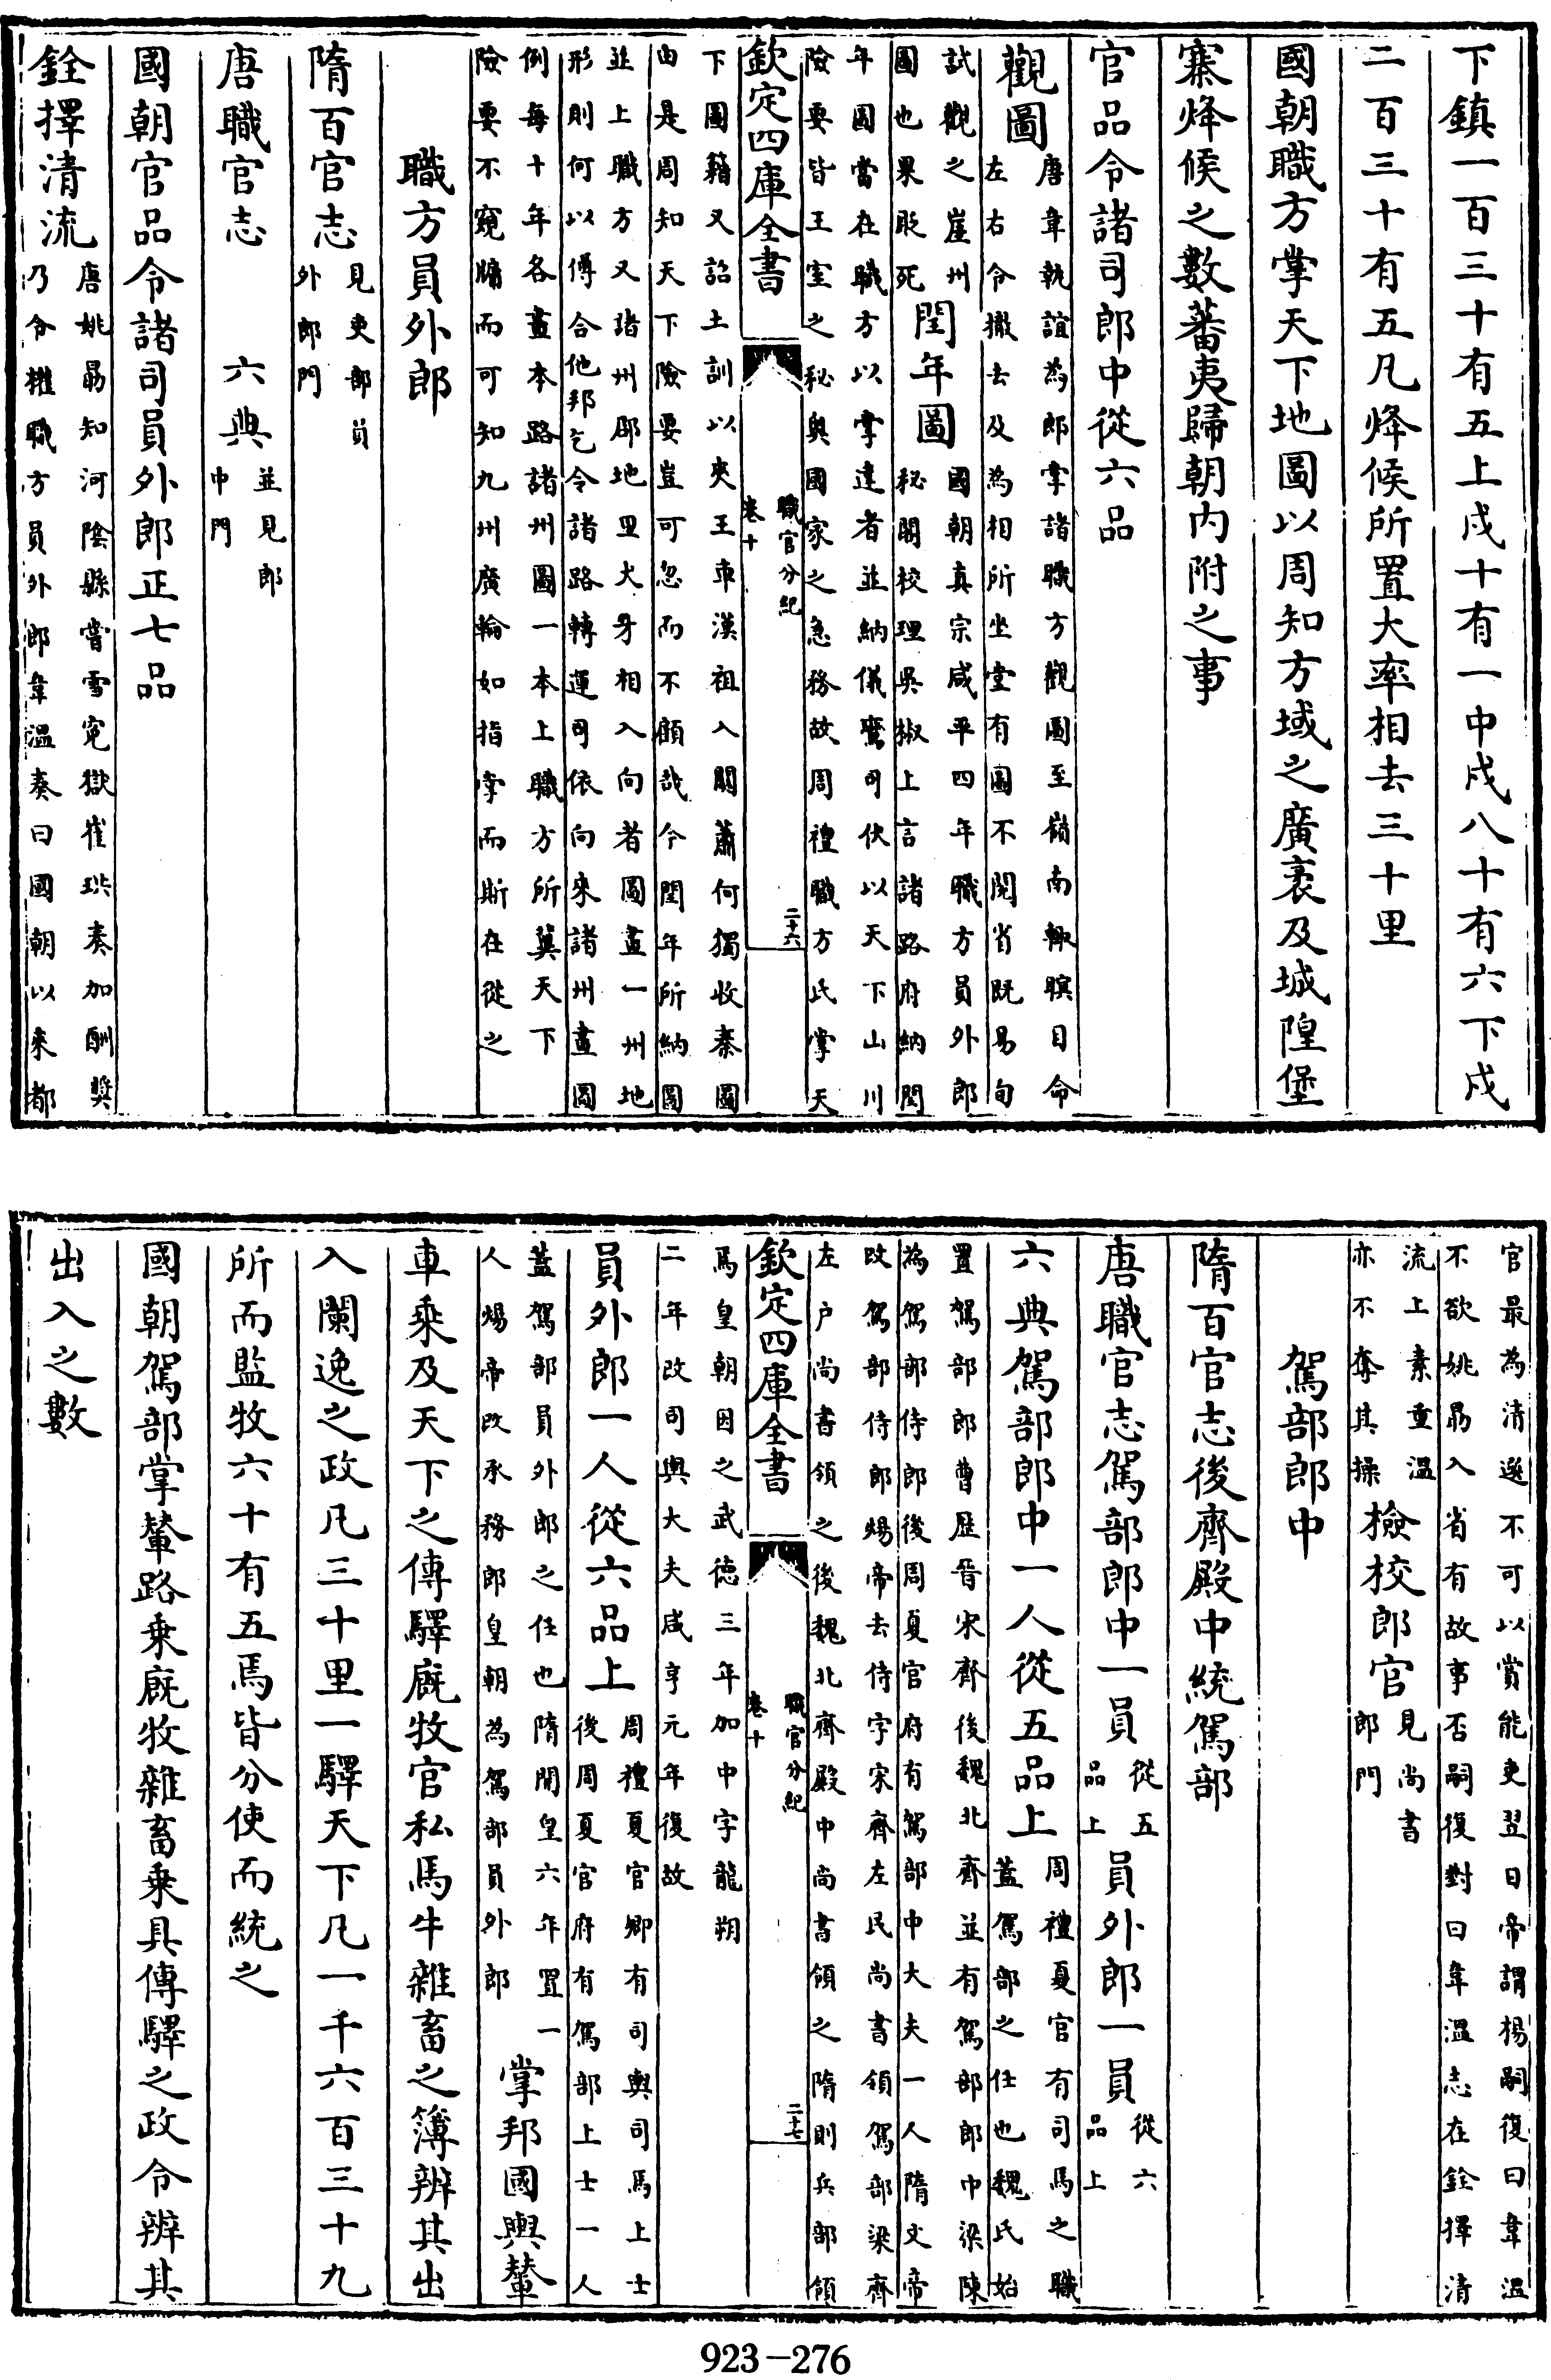 下鎮一百三十有五上戍十有一中戍八十有六下戍
二百三十有五凡烽候所置大率相去三十里
國朝職方掌天下地圖以周知方域之廣袤及城隍堡
寨烽候之數蕃夷歸朝内附之事
官品令諸司郎中從六品
觀圖
唐韋執誼為郎掌諸職方觀圖至嶺南輒瞑目命
左右令撤去及為相所坐堂有圖不閱省既易旬
試觀之崖州
圖也果貶死
閏年圖
國朝真宗咸平四年職方員外郎
秘閣校理吳椒上言諸路府納閏
年圖當在職方以掌達者並納儀鸞司伏以天下山川
險要皆王室之秘奥國家之急務故周禮職方氏掌天
欽定四庫全書
職官分紀
卷十
二十六
下圖籍又詔土訓以夾王車漢祖入關蕭何獨收秦圖
由是周知天下險要豈可忽而不顧哉今閏年所納圖
並上職方又諸州郡地里犬牙相入向者圖畫一州地
形則何以傅合他邦乞令諸路轉運司依向來諸州畫圖
例每十年各畫本路諸州圖一本上職方所冀天下
險要不窺牖而可知九州廣輪如指掌而斯在從之
職方員外郎
隋百官志
見吏部員
外郎門
唐職官志
六典
並見郎
中門
國朝官品令諸司員外郎正七品
銓擇清流
唐姚勗知河陰縣嘗雪寃獄崔珙奏加酬奬
乃令權職方員外郎韋溫奏曰國朝以來都
官最為清選不可以賞能吏翌日帝謂楊嗣復曰韋溫
不欲姚勗入省有故事否嗣復對曰韋溫志在銓擇清
流上素重溫
亦不奪其操
檢校郎官
見尚書
郎門
駕部郎中
隋百官志後齊殿中統駕部
唐職官志駕部郎中一員
從五
品上
員外郎一員
從六
品上
六典駕部郎中一人從五品上
周禮夏官有司馬之職
蓋駕部之任也魏氏始
置駕部郎曹歴晉宋齊後魏北齊並有駕部郎中梁陳
為駕部侍郎後周夏官府有駕部中大夫一人隋文帝
改駕部侍郎煬帝去侍字宋齊左民尚書領駕部梁齊
左户尚書領之後魏北齊殿中尚書領之隋則兵部領
欽定四庫全書
職官分紀
卷十
二十七
焉皇朝因之武徳三年加中字龍朔
二年改司輿大夫咸亨元年復故
員外郎一人從六品上
周禮夏官卿有司輿司馬上士
後周夏官府有駕部上士一人
蓋駕部員外郎之任也隋開皇六年置一
人煬帝改承務郎皇朝為駕部員外郎
掌邦國輿輦
車乘及天下之傳驛廐牧官私馬牛雜畜之簿辨其出
入闌逸之政凡三十里一驛天下凡一千六百三十九
所而監牧六十有五馬皆分使而統之
國朝駕部掌輦路乗廐牧雜畜乗具傳驛之政令辨其
出入之數
923-276